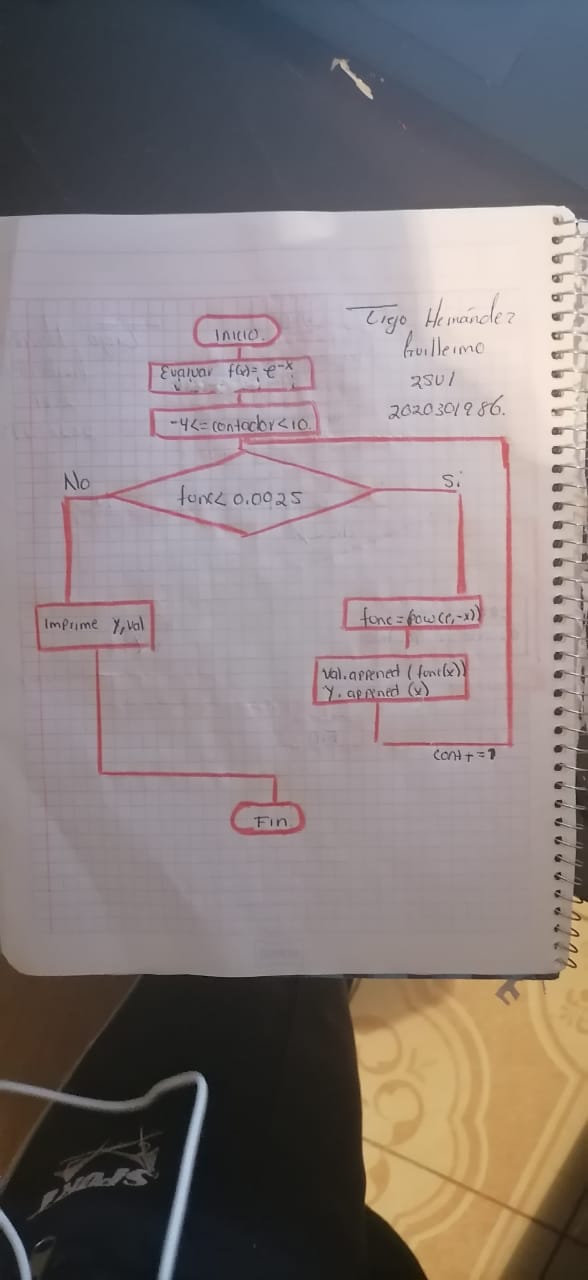 Trejo Hernández
Guillermo
2SV1
2020301986.
Inicio.
Evaluar f(x)= e^-x
-4<=contador<10.
No
Si
func< 0.0025
Imprime Y, Val
func = pow(e,-x))
Val.appened (func(x))
Y. appened (x)
cont+=1
Fin.
SPORT